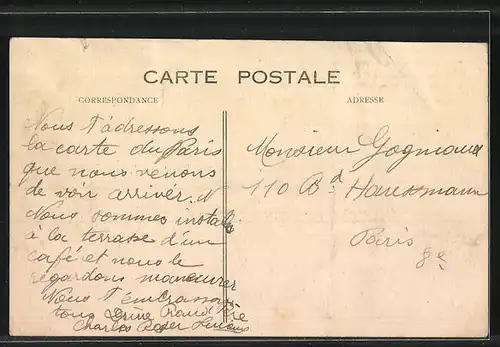 CARTE POSTALE
CORRESPONDANCE
ADRESSE
Nous t'adressons
la carte du Paris
que nous venons
de voir arriver. N
Nous sommes installés
à la terrasse d'un
café et nous le
regardons manœuvrer
Nous t'embrassons
tous
Charles Roger
Monsieur Gogniaud
110 Bd Haussmann
Paris
8e